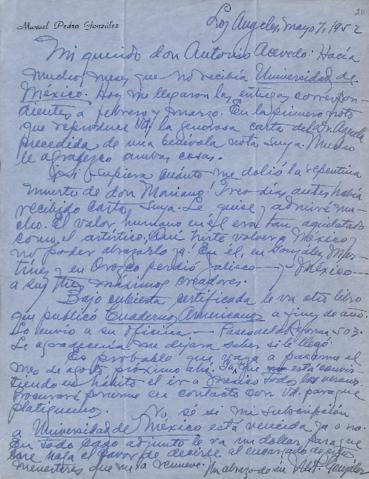 Manuel Pedro González
Los Angeles, mayo 7, 1952
Mi querido don Antonio Acevedo: Hacía
mucho, muy que no recibía Universidad de
México. Hoy me llegaron las entregas correspon-
dientes a febrero y marzo. En la primera noto
que reproduce Ud. la generosa carta del Dr.
precedida de una benévola nota suya. Mucho
le agradezco ambas cosas.
¡Si supiera cuánto me dolió la repentina
muerte de don Mariano! Tres días antes había
recibido carta suya. Le quise y admiré mu-
cho. El valor humano en él era tan aquilatado
como el artístico. Qué triste volver a México y
no poder abrazarlo ya! En él, en González Mar-
tínez y en Orozco perdió Jalisco — y México —
a sus tres máximos creadores.
Bajo cubierta certificada le va otro libro
que publicó Cuadernos Americanos a fines de año.
Lo envío a su oficina — Paseo de la Reforma 503.
Le agradecería me dijera saber si le llegó.
Es probable que vaya a pasarme el
mes de agosto próximo ahí. Ya que está convir-
tiendo en hábito el ir a México todos los veranos.
Procuraré ponerme en contacto con Ud. para que
platiquemos.
No sé si mi subscripción
a Universidad de México está vencida ya o no.
En todo caso adjunto le va un dollar, para que
me haga el favor de decirle al encargado de estos
menesteres que me la renueve. Un abrazo de su M. P. González